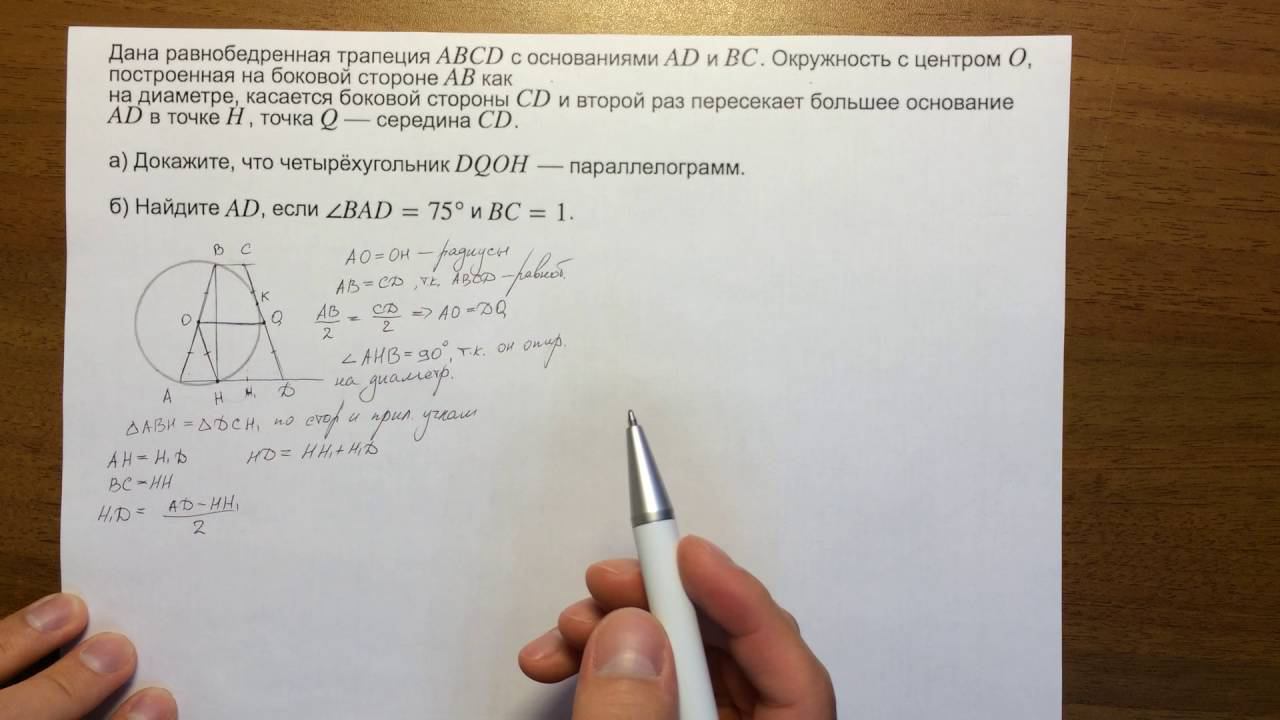 Дана равнобедренная трапеция ABCD с основаниями AD и BC. Окружность с центром O,
построенная на боковой стороне AB как
на диаметре, касается боковой стороны CD и второй раз пересекает большее основание
AD в точке H , точка Q — середина CD.
а) Докажите, что четырёхугольник DQOH — параллелограмм.
б) Найдите AD, если ∠BAD = 75° и BC = 1.
B C
K
O Q
A H H₁ D
AO = OH – радиусы
AB = CD , т.к. ABCD – равноб.
AB/2 = CD/2 => AO = DQ
∠AHB = 90°, т.к. он опир.
на диаметр.
△ABH = △DCH₁ по стор и прил. углам
AH = H₁D HD = HH₁ + H₁D
BC = HH
H₁D = AD – HH₁ / 2